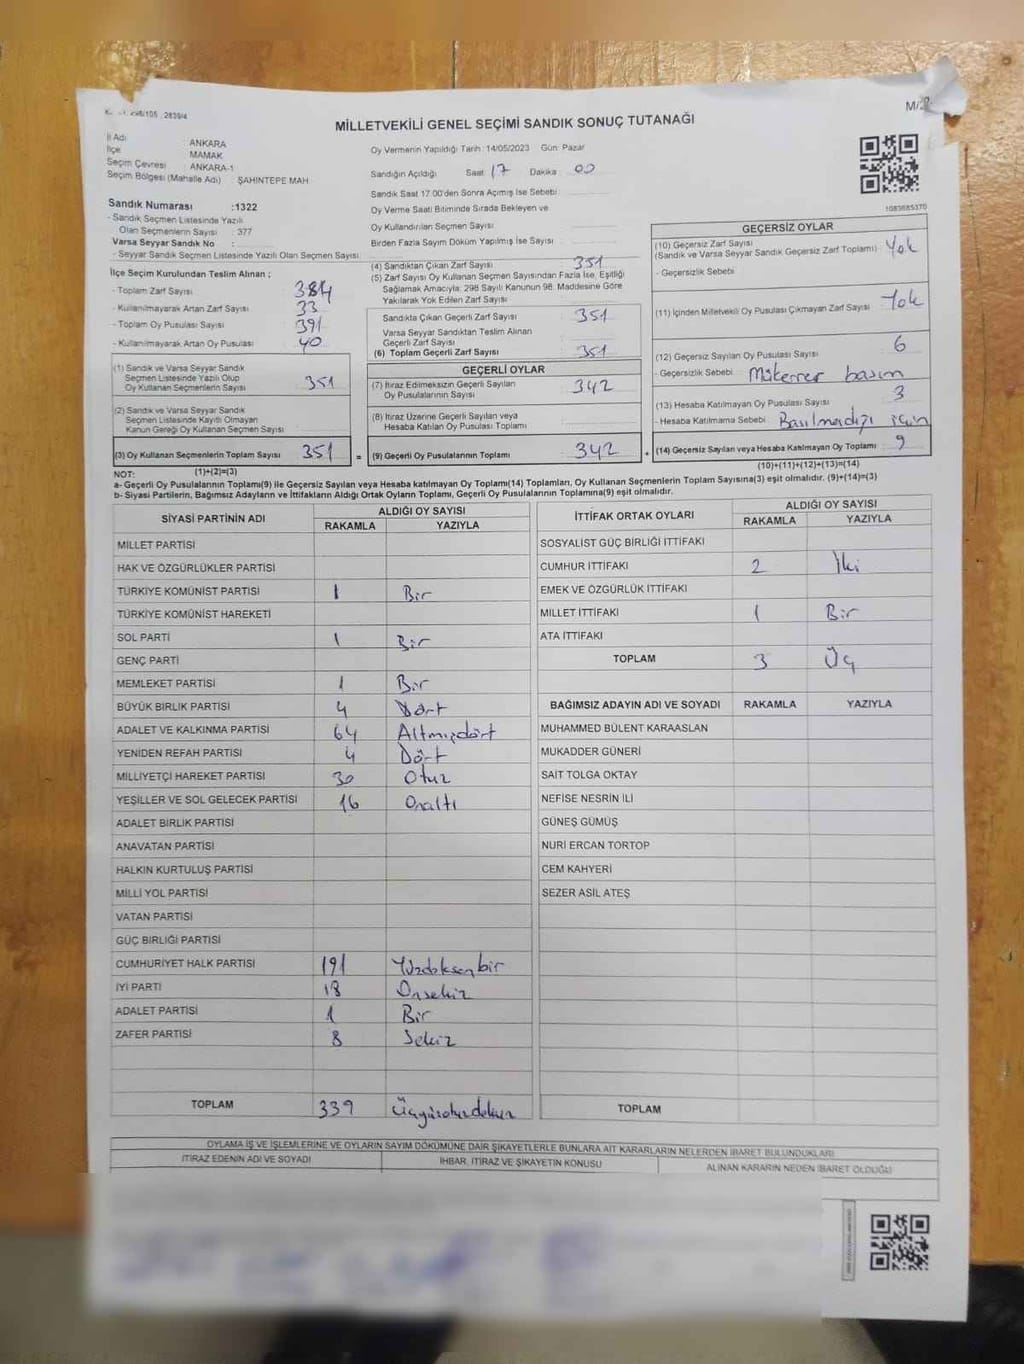 MİLLETVEKİLİ GENEL SEÇİMİ SANDIK SONUÇ TUTANAĞI
İl Adı : ANKARA
İlçe : MAMAK
Seçim Çevresi : ANKARA-1
Seçim Bölgesi (Mahalle Adı) : ŞAHİNTEPE MAH.
Sandık Numarası :1322
- Sandık Seçmen Listesinde Yazılı
Olan Seçmenlerin Sayısı : 377
Varsa Seyyar Sandık No :
- Seyyar Sandık Seçmen Listesinde Yazılı Olan Seçmen Sayısı:
İlçe Seçim Kurulundan Teslim Alınan ;
- Toplam Zarf Sayısı 384
- Kullanılmayarak Artan Zarf Sayısı : 33
- Toplam Oy Pusulası Sayısı : 391
- Kullanılmayarak Artan Oy Pusulası : 40
(1) Sandık ve Varsa Seyyar Sandık
Seçmen Listesinde Yazılı Olup
Oy Kullanan Seçmenlerin Sayısı : 351
(2) Sandık ve Varsa Seyyar Sandık
Seçmen Listesinde Kayıtlı Olmayan
Kanun Gereği Oy Kullanan Seçmen Sayısı :
(3) Oy Kullanan Seçmenlerin Toplam Sayısı : 351 =
Oy Vermenin Yapıldığı Tarih : 14/05/2023 Gün: Pazar
Sandığın Açıldığı Saat : 17 Dakika : 00
Sandık Saat 17.00'den Sonra Açılmış İse Sebebi :
Oy Verme Saati Bitiminde Sırada Bekleyen ve
Oy Kullandırılan Seçmen Sayısı :
Birden Fazla Sayım Döküm Yapılmış İse Sayısı :
(4) Sandıktan Çıkan Zarf Sayısı : 351
(5) Zarf Sayısı Oy Kullanan Seçmen Sayısından Fazla İse, Eşitliği
Sağlamak Amacıyla; 298 Sayılı Kanunun 98. Maddesine Göre
Yakılarak Yok Edilen Zarf Sayısı :
Sandıkta Çıkan Geçerli Zarf Sayısı : 351
Varsa Seyyar Sandıktan Teslim Alınan
Geçerli Zarf Sayısı :
(6) Toplam Geçerli Zarf Sayısı : 351
GEÇERLİ OYLAR
(7) İtiraz Edilmeksizin Geçerli Sayılan
Oy Pusulalarının Sayısı : 342
(8) İtiraz Üzerine Geçerli Sayılan veya
Hesaba Katılan Oy Pusulası Toplamı :
(9) Geçerli Oy Pusulalarının Toplamı : 342 +
1083685370
GEÇERSİZ OYLAR
(10) Geçersiz Zarf Sayısı
(Sandık ve Varsa Seyyar Sandık Geçersiz Zarf Toplamı) : Yok
- Geçersizlik Sebebi
(11) İçinden Milletvekili Oy Pusulası Çıkmayan Zarf Sayısı : Yok
(12) Geçersiz Sayılan Oy Pusulası Sayısı : 6
- Geçersizlik Sebebi : Mükerrer basım
(13) Hesaba Katılmayan Oy Pusulası Sayısı : 3
- Hesaba Katılmama Sebebi : Basılmadığı için
(14) Geçersiz Sayılan veya Hesaba Katılmayan Oy Toplamı : 9
(10)+(11)+(12)+(13)=(14)
NOT: (1)+(2)=(3)
a- Geçerli Oy Pusulalarının Toplamı(9) ile Geçersiz Sayılan veya Hesaba Katılmayan Oy Toplamı(14) Toplamları, Oy Kullanan Seçmenlerin Toplam Sayısına(3) eşit olmalıdır. (9)+(14)=(3)
b- Siyasi Partilerin, Bağımsız Adayların ve İttifakların Aldığı Ortak Oyların Toplamı, Geçerli Oy Pusulalarının Toplamına(9) eşit olmalıdır.
SİYASİ PARTİNİN ADI ALDIĞI OY SAYISI
RAKAMLA YAZIYLA
MİLLET PARTİSİ
HAK VE ÖZGÜRLÜKLER PARTİSİ
TÜRKİYE KOMÜNİST PARTİSİ 1 Bir
TÜRKİYE KOMÜNİST HAREKETİ
SOL PARTİ 1 Bir
GENÇ PARTİ
MEMLEKET PARTİSİ 1 Bir
BÜYÜK BİRLİK PARTİSİ 4 Dört
ADALET VE KALKINMA PARTİSİ 64 Altmışdört
YENİDEN REFAH PARTİSİ 4 Dört
MİLLİYETÇİ HAREKET PARTİSİ 30 Otuz
YEŞİLLER VE SOL GELECEK PARTİSİ 16 Onaltı
ADALET BİRLİK PARTİSİ
ANAVATAN PARTİSİ
HALKIN KURTULUŞ PARTİSİ
MİLLİ YOL PARTİSİ
VATAN PARTİSİ
GÜÇ BİRLİĞİ PARTİSİ
CUMHURİYET HALK PARTİSİ 191 Yüzdoksanbir
İYİ PARTİ 18 Onsekiz
ADALET PARTİSİ 1 Bir
ZAFER PARTİSİ 8 Sekiz
TOPLAM 339
İTTİFAK ORTAK OYLARI ALDIĞI OY SAYISI
RAKAMLA YAZIYLA
SOSYALİST GÜÇ BİRLİĞİ İTTİFAKI
CUMHUR İTTİFAKI 2 İki
EMEK VE ÖZGÜRLÜK İTTİFAKI
MİLLET İTTİFAKI 1 Bir
ATA İTTİFAKI
TOPLAM 3 Üç
BAĞIMSIZ ADAYIN ADI VE SOYADI RAKAMLA YAZIYLA
MUHAMMED BÜLENT KARAASLAN
MUKADDER GÜNERİ
SAİT TOLGA OKTAY
NEFİSE NESRİN İLİ
GÜNEŞ GÜMÜŞ
NURİ ERCAN TORTOP
CEM KAHYERİ
SEZER ASİL ATEŞ
TOPLAM
OYLAMA İŞ VE İŞLEMLERİNE VE OYLARIN SAYIM DÖKÜMÜNE DAİR ŞİKAYETLERLE BUNLARA AİT KARARLARIN NELERDEN İBARET BULUNDUKLARI
İTİRAZ EDENİN ADI VE SOYADI İHBAR, İTİRAZ VE ŞİKAYETİN KONUSU ALINAN KARARIN NEDEN İBARET OLDUĞU